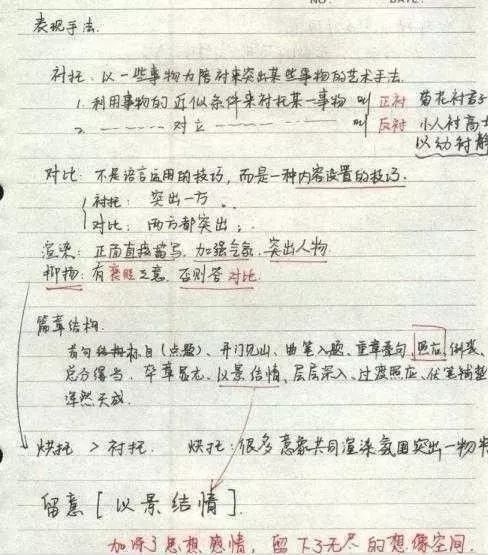 NO. DATE.
表现手法.
衬托: 以一些事物为陪衬来突出某些事物的艺术手法.
1. 利用事物的近似条件来衬托某一事物 叫 正衬 菊花衬君子
2. ------ 对立 ------ 叫 反衬 小人衬高士
以动衬静
对比: 不是语言运用的技巧, 而是一种内容设置的技巧.
衬托: 突出一方.
对比: 两方都突出;
渲染: 正面直接描写, 加强气氛, 突出人物.
抑扬: 有褒贬之意. 否则答对比.
篇章结构.
首句标目(点题)、开门见山、曲笔入题、重章叠句、照应、倒装、
总分得当、卒章显志、以景结情、层层深入、过渡照应、伏笔铺垫
浑然天成.
烘托 > 衬托. 烘托: 很多意象共同渲染氛围突出一物
留意 [以景结情].
加深了思想感情, 留下了无尽的想像空间.